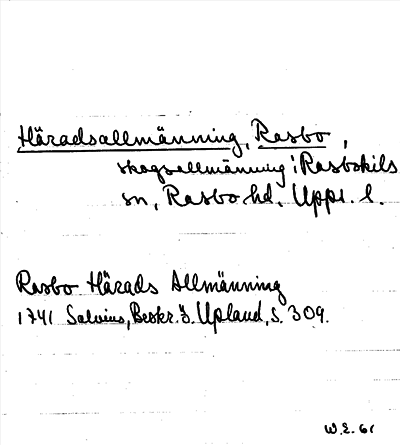 Häradsallmänning, Rasbo,
skogsallmänning i Rasbokils
sn, Rasbo hd, Upps. l.
Rasbo Härads Allmänning
1741 Salvius, Beskr. ö. Upland, s. 309.
W.E. 61